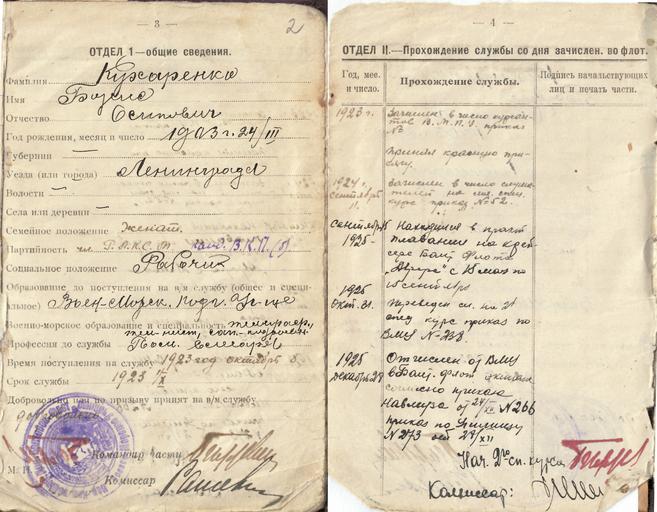 — 3 —
2
ОТДЕЛ 1—общие сведения.
Фамилия Кухаренко
Имя
Отчество Осипович
Год рождения, месяц и число 1903 г. 24/III
Губернии —
Уезда (или города) Ленинграда
Волости —
Села или деревни —
Семейное положение женат.
Партийность чл. канд. В.К.П.(б)
Социальное положение Рабочий
Образование до поступления на в/м службу (общее и специ-
альное) Воен-Морск. подг. Уч-ще
Военно-морское образование и специальность
Профессия до службы слесарь
Время поступления на службу 1923 год октября 8.
Срок службы 1923 IX
Добровольно или по призыву принят на в/м службу
Командир части
М. П.
Комиссар
— 4 —
ОТДЕЛ II.—Прохождение службы со дня зачислен. во флот.
Год, мес. и число.
Прохождение службы.
Подпись начальствующих лиц и печать части.
1923 г. Зачислен в число курсан-
тов В.М.П.У. приказ
№
Принял красную при-
сягу.
1924 г. Зачислен в число слуша-
сентября
1. курс приказ № 52.
сентября Находился в практ.
1925 - плавании на крей-
сере Балт Флота
"Аврора" с 15 мая по
15 сентября
1925
Окт. 31. Переведен сп. на 2й
спец курс приказ по
ВМУ № 238.
1925 Отчислен от ВМУ
декабря 29 в Балт. флот
согласно приказа
от 24/XII № 266
приказ по Училищу
№ 273 от 29/XII
Нач. 2го сп. курса
Комиссар: